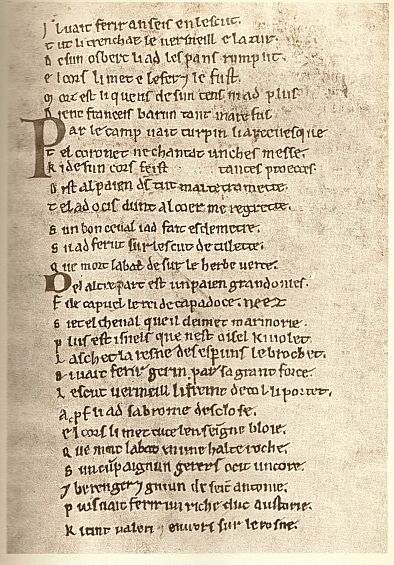 S i uait ferir anseis en lescut.
T ut li trenchat le uermeill e lazur.
D e sun osberc li ad les pans rumput.
E l cors li met e le fer e le fust.
M orz est li quens de sun tens ni ad plus
D ient franceis barun tant mare fus
P ar le camp uait turpin li arceuesque
T el coronet ne chantat unches messe.
K i de sun cors feist tantes proecces.
D ist al paien ds tut mal te tramette.
T el ad ocis dunt al coer me regrette.
S un bon ceual i ad fait esdemetre.
S i lad ferut sur lescut de tulette.
Q ue mort labat de sur le herbe uerte.
D el altre part est un paien grandonies.
F ilz capuel le rei de capadoce.
S iet el cheual que il cleimet marmorie.
P lus est isnels que nest oisel ki uolet.
L aschet la resne des espuns le brochet.
S i uait ferir gerin par sa grant force.
L escut uermeill li freint de col li portet.
A pf li ad sa bronie desclose.
E l cors li met tute lenseigne bloie.
Q ue mort labat en une halte roche.
S un cupaignun gerers ocit uncore.
⁊ berenger ⁊ guiun de seint antonie.
P uis uait ferir un riche duc austorie.
K i tint ualeri ⁊ enuers sur le rosne.